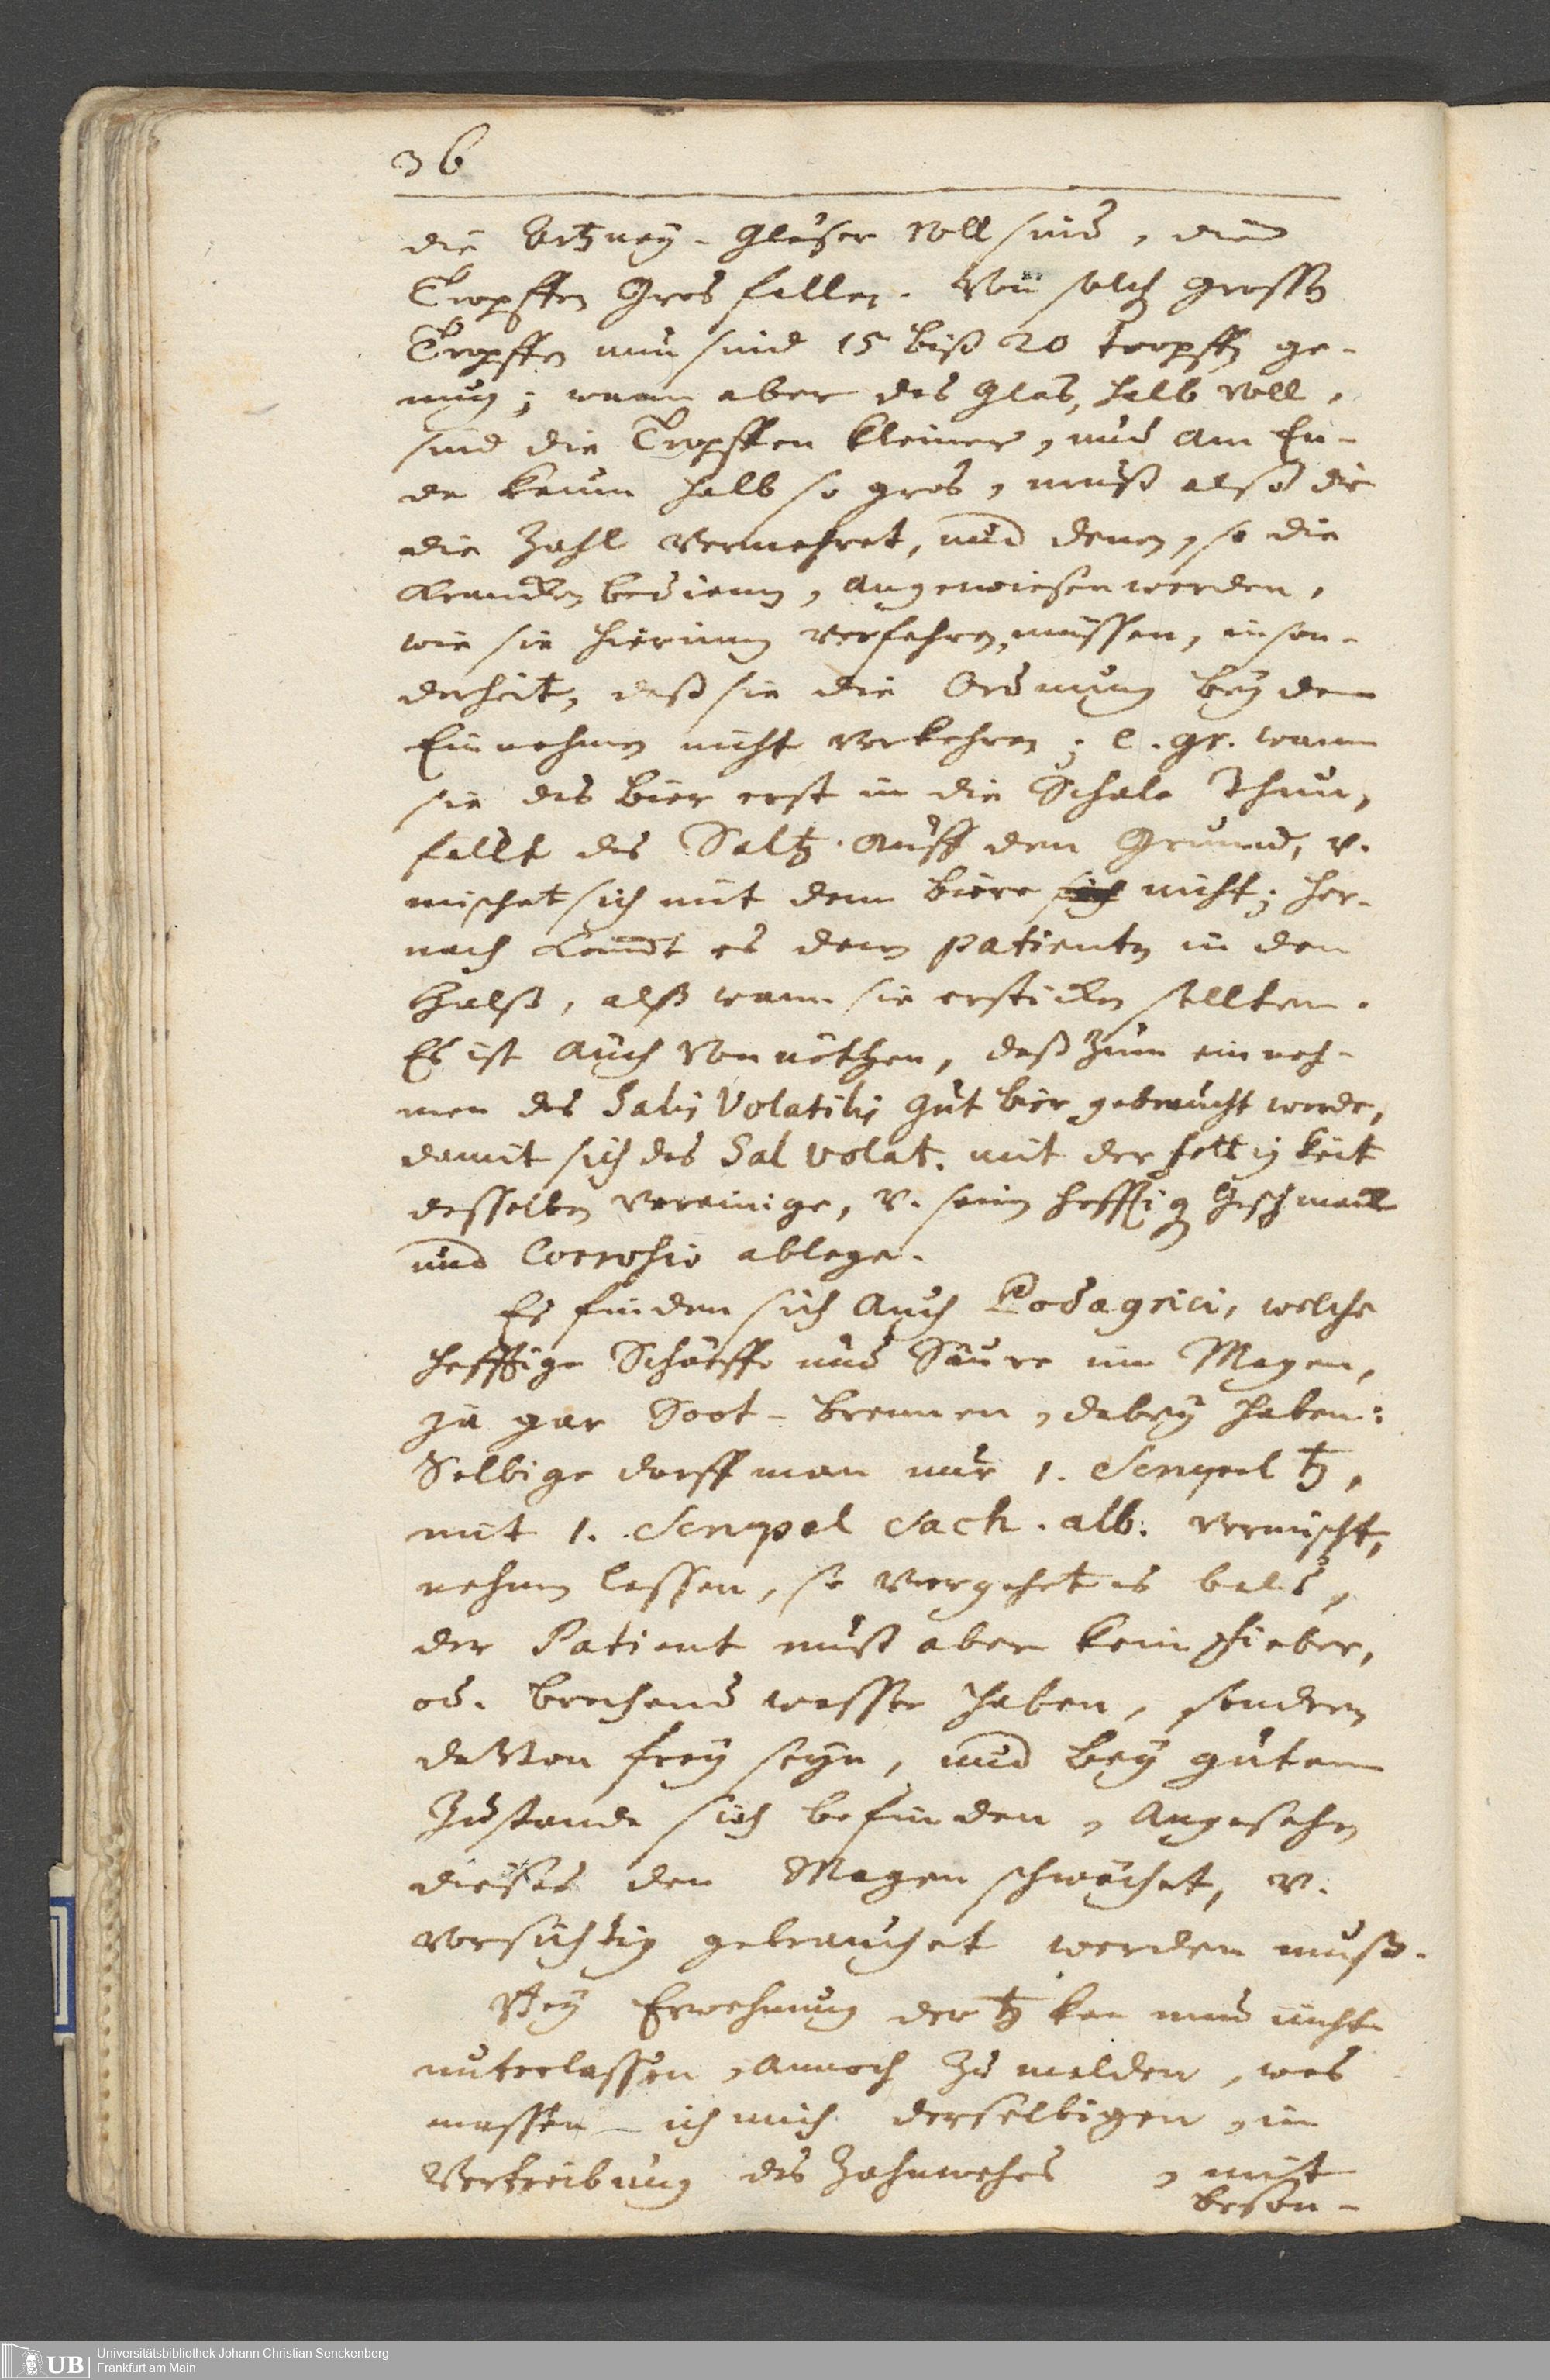 36
die Artzney-Gläser voll sind, die
Tropffen gros fallen. Von solch grossen
Tropffen nun sind 15 biß 20 tropffen ge-
nung; wann aber das Glas, halb voll,
sind die Tropffen kleiner, und am En-
de kaum halb so gros, muß also die
die Zahl vermehret, und denen, so die
Krancken bedienen, angewiesen werden,
wie sie hierinnen verfahren müssen, inson-
derheit, daß sie die Ordnung bey dem
Einnehmen nicht verkehren; e. gr. wann
sie das Bier erst in die Schale thun,
fällt das Saltz auff den Grund, v.
mischet sich mit dem Biere sich nicht; her-
nach kömbt es dem patienten in den
Halß, alß wann sie ersticken sollten.
Es ist auch von nöthen, daß zum einneh-
men des Salis Volatilis gut bier gebraucht werde,
damit sich das Sal volat. mit der fettigkeit
desselben vereinige, v. seinen hefftigen Geschmack
und Corrosio ablege.
Es finden sich auch Podagrici, welche
hefftige Schärffe und Säure im Magen,
ja gar Soot-brennen, dabey haben:
Selbige darff man nur 1. Scrupel ♄,
mit 1. Scrupel sach. alb. vermischt,
nehmen lassen, so vergehet es bald,
der Patient muß aber kein Fieber,
od. brechend wasser haben, sondern
davon frey seyn, und bey gutem
Zustande sich befinden, Angesehen
dieses den Magen schwächet, v.
vorsichtig gebrauchet werden muß.
Bey Erwehnung der ♄ kan nun nicht
unterlassen, annoch zu melden, was
massen ich mich derselbigen, in
Vertreibung des Zahnwehes, mit
beson-
Universitätsbibliothek Johann Christian Senckenberg
Frankfurt am Main
UB